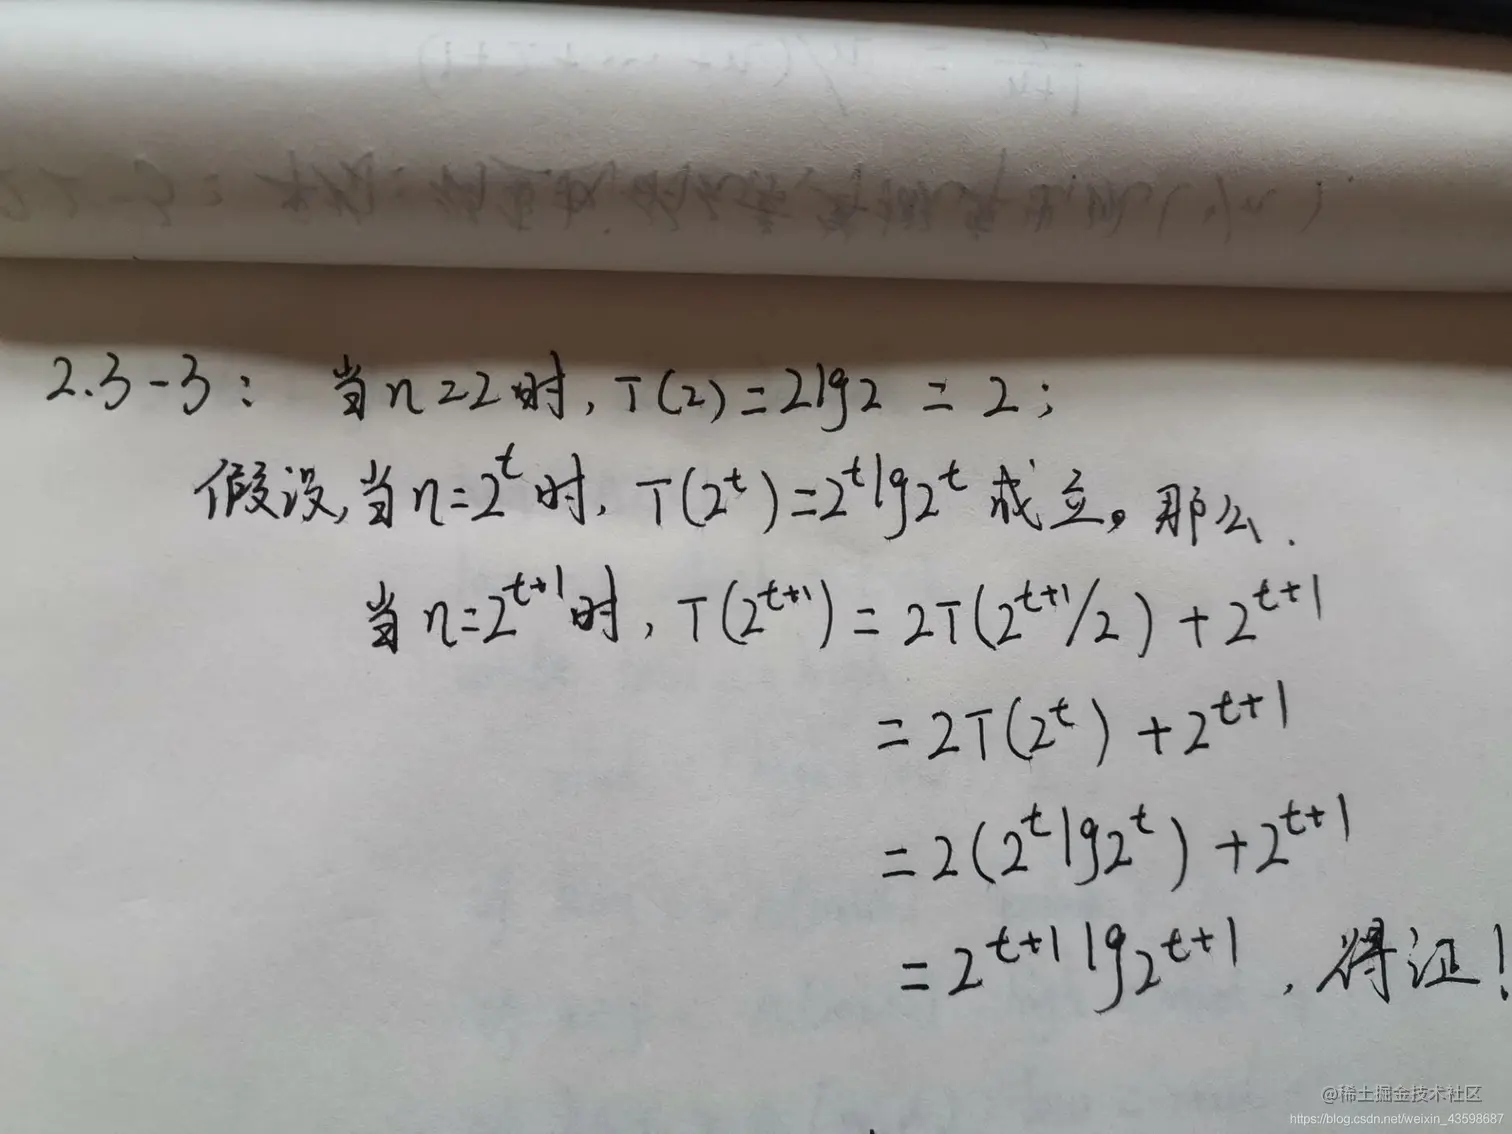 2.3-3: 当n=2时, T(2)=2lg2 = 2;
假设,当n=2^t时, T(2^t)=2^t lg2^t 成立。那么.
当n=2^{t+1}时, T(2^{t+1}) = 2T(2^{t+1}/2) + 2^{t+1}
= 2T(2^t) + 2^{t+1}
= 2(2^t lg2^t) + 2^{t+1}
= 2^{t+1} lg2^{t+1}, 得证!
@稀土掘金技术社区
https://blog.csdn.net/weixin_43598687